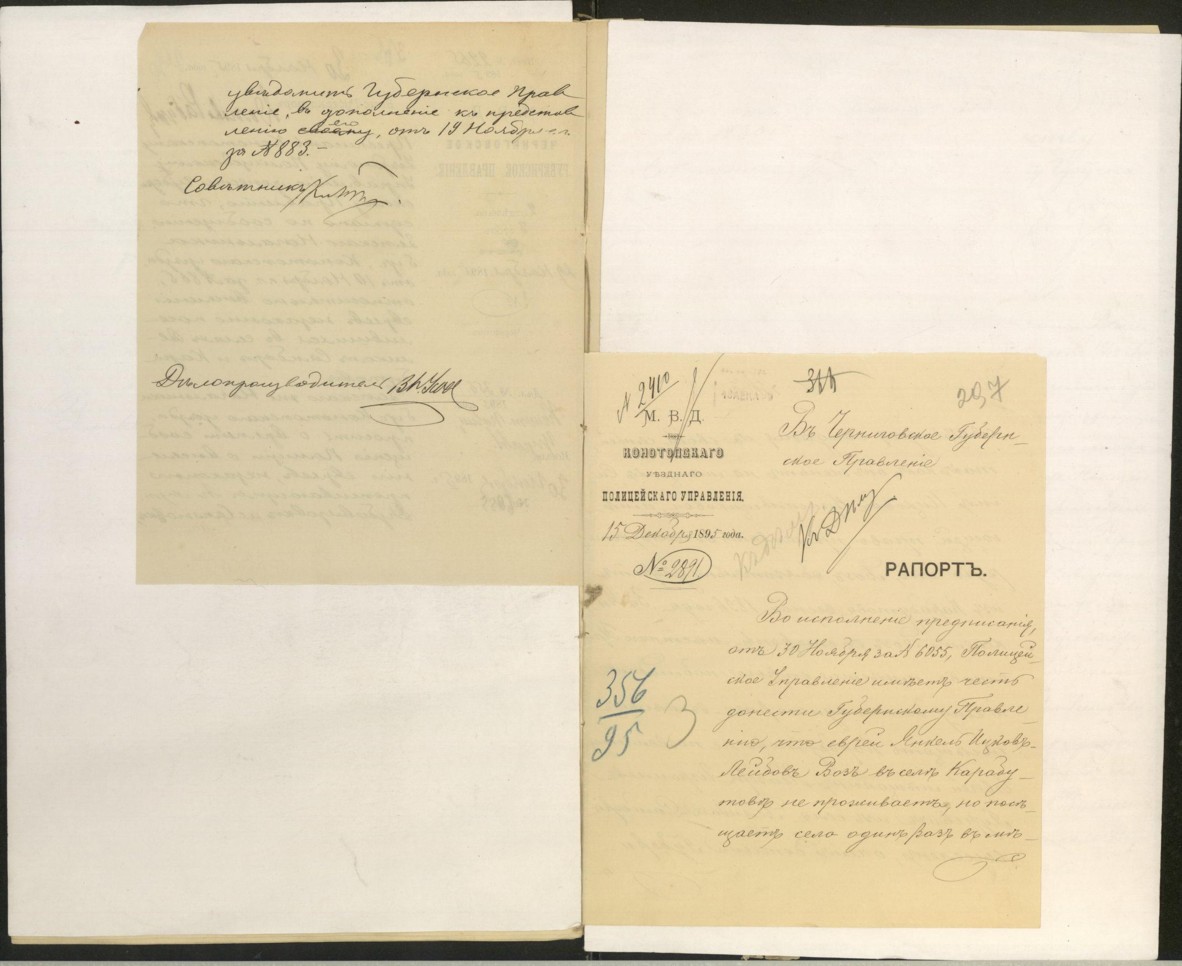 увѣдомить Губернское Прав
леніе, въ дополненіе къ представ
ленію его, отъ 19 Ноября
за № 883.-
Совѣтникъ
Дѣлопроизводитель
№ 2410
297
М. В. Д.
КОНОТОПСКАГО
УѢЗДНАГО
ПОЛИЦЕЙСКАГО УПРАВЛЕНІЯ.
15 Декабря 1895 года.
№ 2891
Въ Черниговское Губерн-
ское Правленіе
Къ Дѣлу
РАПОРТЪ.
356
95
Во исполненіе предписанія,
отъ 30 Ноября за № 6055, Полицей-
ское Управленіе имѣетъ честь
донести Губернскому Правле-
нію, что еврей Янкель Ицковъ-
Лейбовъ Возъ въ селѣ Карабу-
товѣ не проживаетъ, но посѣ-
щаетъ село одинъ разъ въ мѣ-